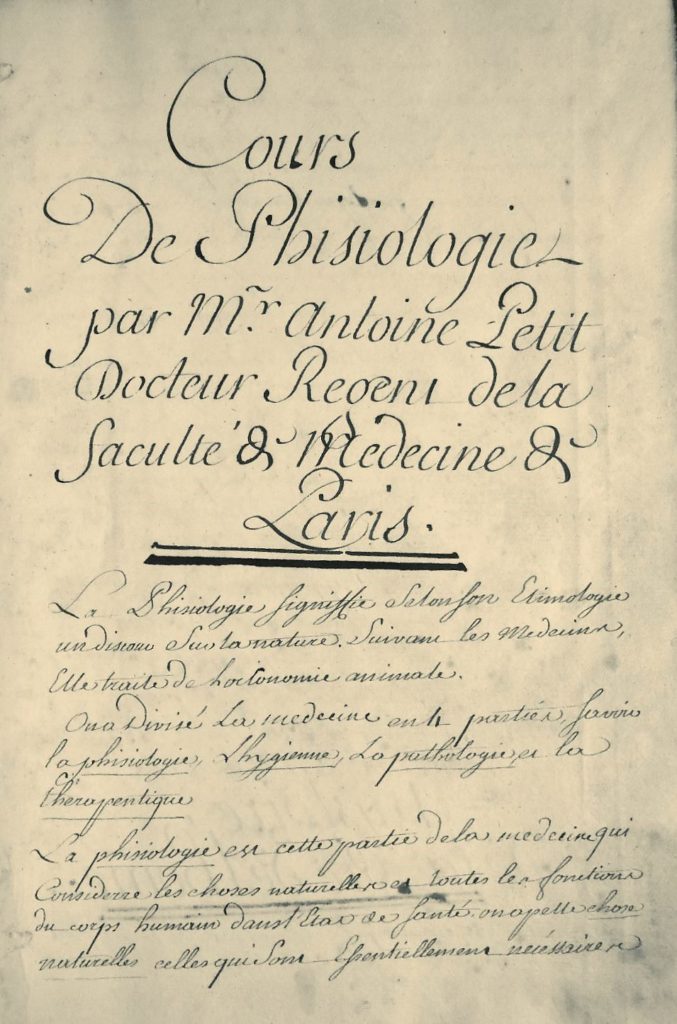 Cours
De Phisiologie
par Mr. Antoine Petit
Docteur Regent de la
faculté de Medecine de
Paris.
La Phisiologie signiffie Selon son Etimologie
un discour Sur la nature. Suivant les Medecins,
Elle traite de l'oeconomie animale.
On a Divisé La medecine en 4 parties, savoir
la phisiologie, L'hygienne, La pathologie, et la
therapentique
La phisiologie est cette partie de la medecine qui
Considerre les choses naturelles et toutes les fonctions
du corps humain dans l'Etat de santé. on apelle chose
naturelles celles qui Sont Essentiellement nécéssaires